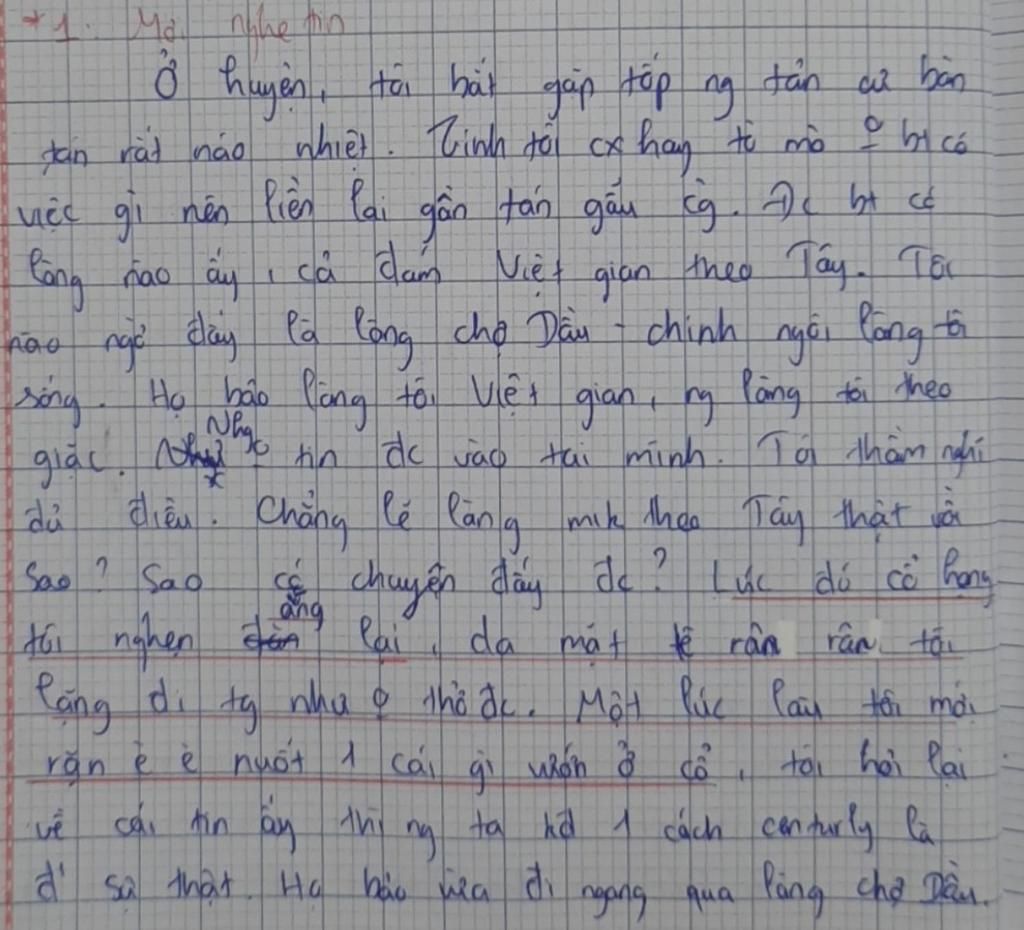 * 1. Mới nghe tin
Ở huyện, tôi bắt gặp tốp ng tản cư bàn
tán rất náo nhiệt. Tính tôi cx hay tò mò o bt có
việc gì nên liền lại gần tán gẫu cg. Đc bt có
làng nào ấy, cả đám Việt gian theo Tây. Tôi
nào ngờ đấy là làng chợ Dầu - chính ngôi làng tôi
sống. Họ bảo làng tôi Việt gian, ng làng tôi theo
giặc. Nhg o tin đc vào tai mình. Tôi thầm nghĩ
đủ điều. Chẳng lẽ làng mik theo Tây thật rồi
sao? Sao có chuyện đấy đc? Lúc đó cổ họng
tôi nghẹn ắng lại, da mặt tê rân rân. tôi
lặng đi tg như o thở đc. Một lúc lâu tôi mới
rặn è è nuốt 1 cái gì vướn ở cổ, tôi hỏi lại
về cái tin ấy thì ng ta kđ 1 cách là
sự thật. Họ bảo vừa đi ngang qua làng chợ Dầu.